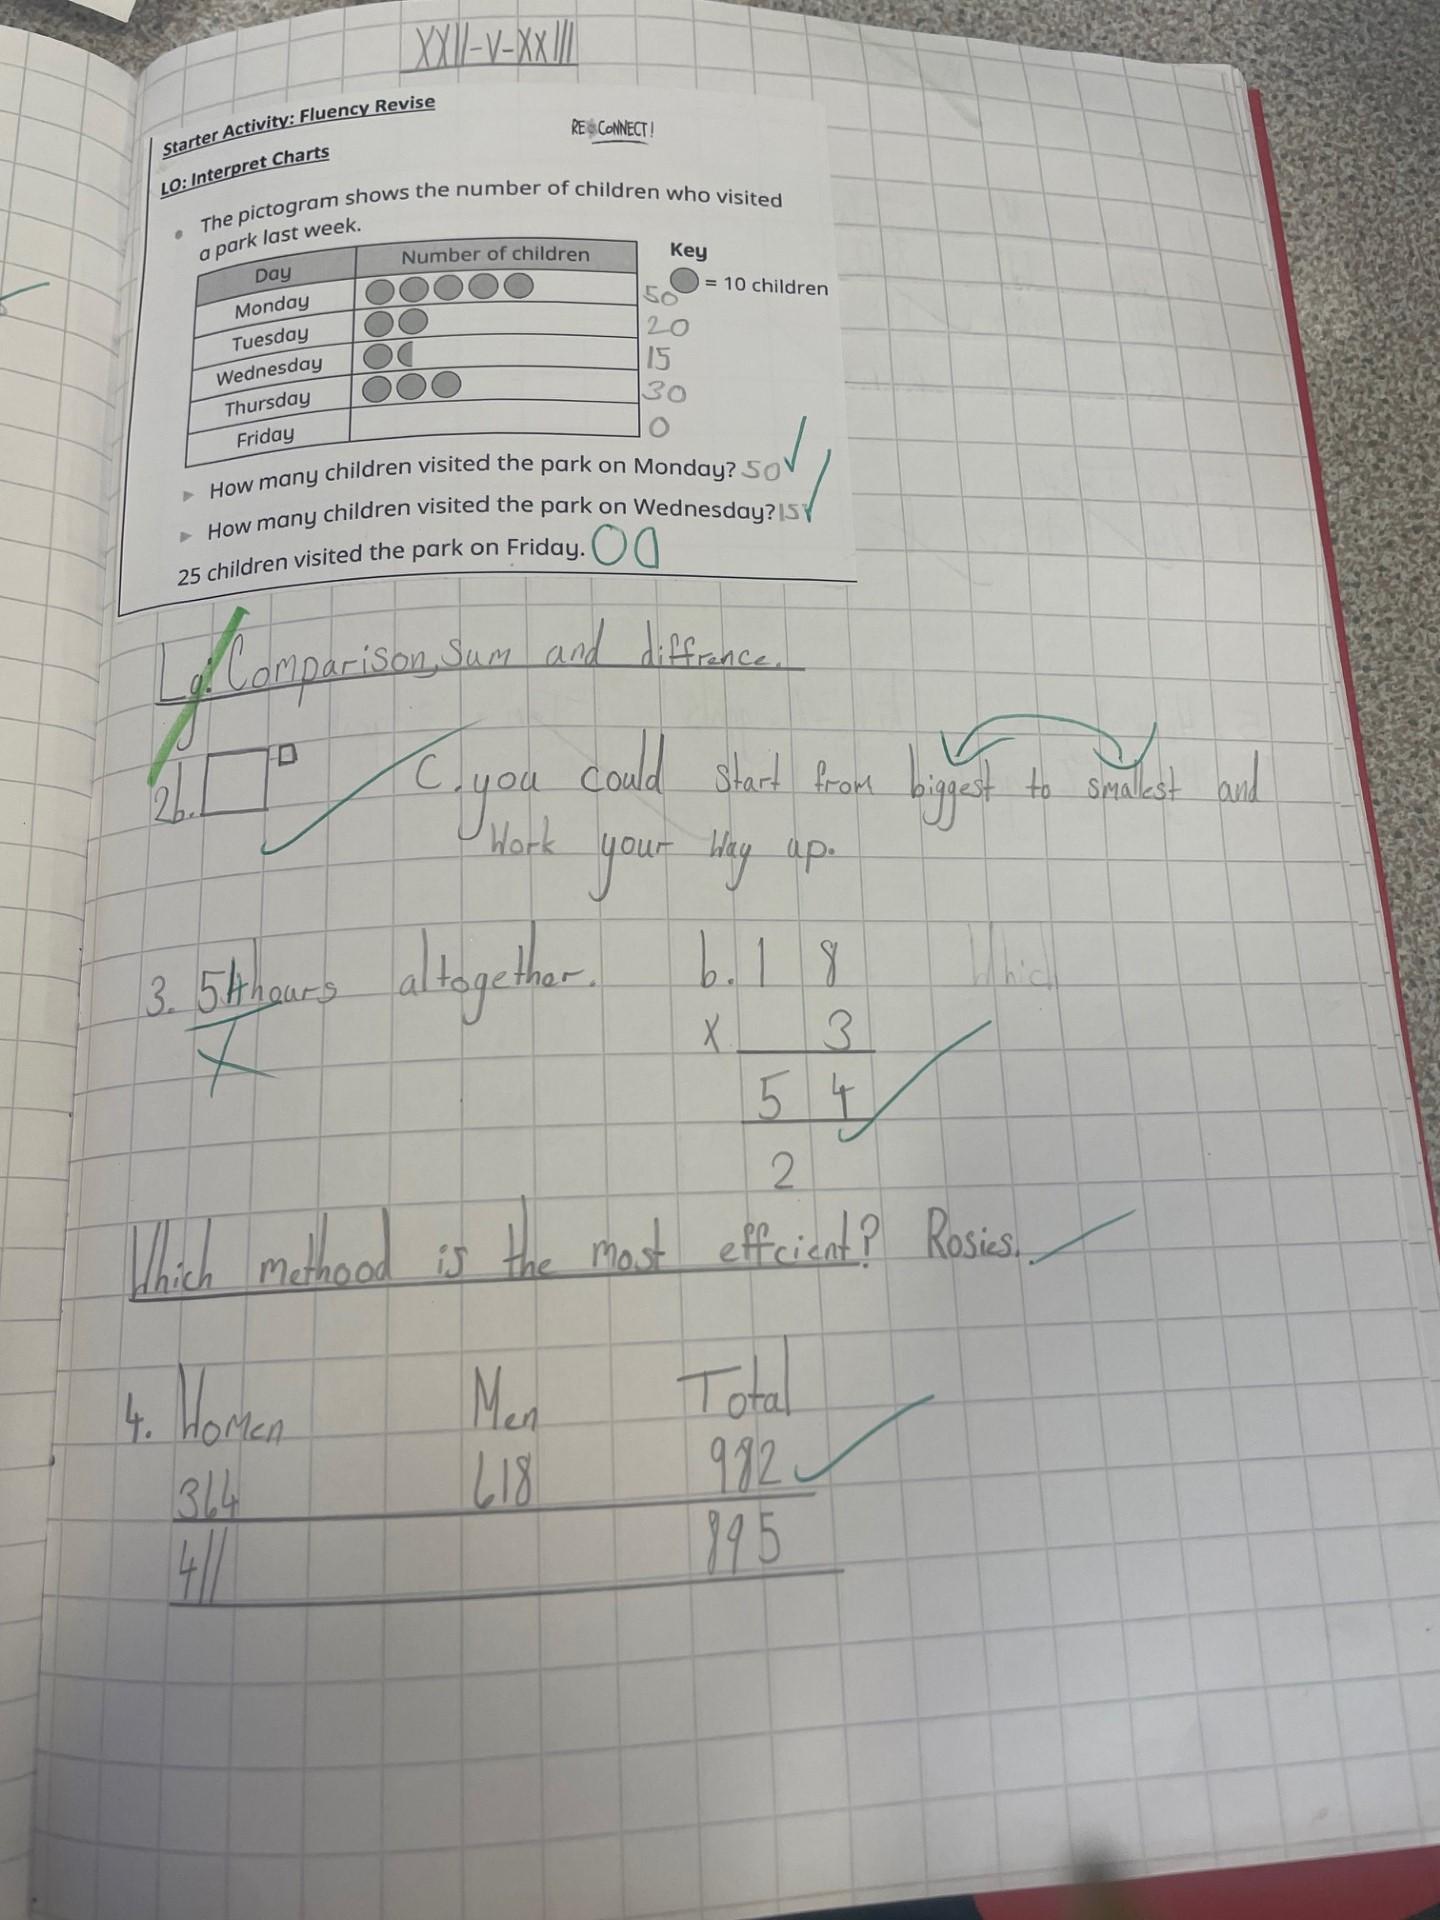 XXII-V-XXIII
Starter Activity: Fluency Revise
RECONNECT!
LO: Interpret Charts
The pictogram shows the number of children who visited
a park last week.
Day Number of children Key
= 10 children
Monday 50
Tuesday 20
Wednesday 15
Thursday 30
Friday 0
How many children visited the park on Monday? 50
How many children visited the park on Wednesday? 15
25 children visited the park on Friday.
Comparison, Sum and diffrence.
2b.
C. you could start from biggest to smallest and
work your way up.
3. 54 hours altogether.
b. 1 8
Which
x 3
5 4
2
Which methood is the most effcient? Rosies.
4. Women Men Total
364 618 982
411 895